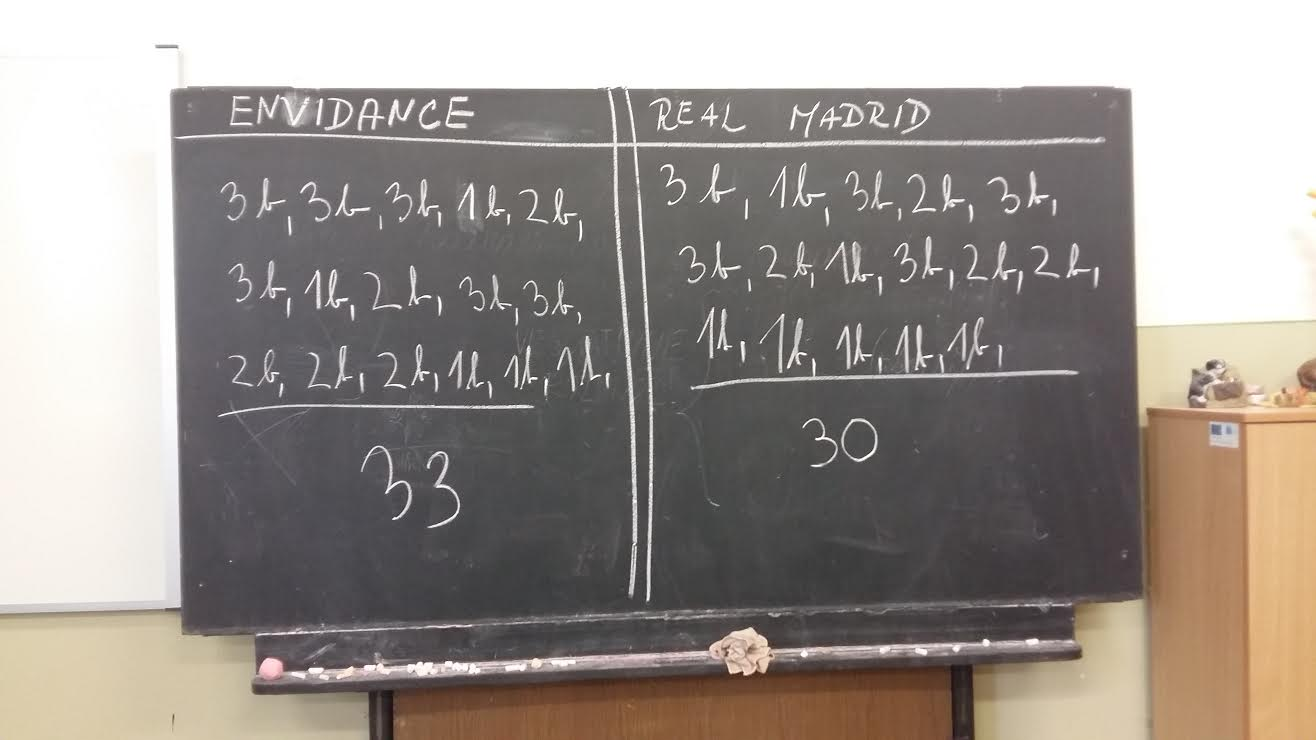 ENVIDANCE
3b, 3b, 3b, 1b, 2b,
3b, 1b, 2b, 3b, 3b,
2b, 2b, 2b, 1b, 1b, 1b,
33
REAL MADRID
3b, 1b, 3b, 2b, 3b,
3b, 2b, 1b, 3b, 2b, 2b,
1b, 1b, 1b, 1b, 1b,
30